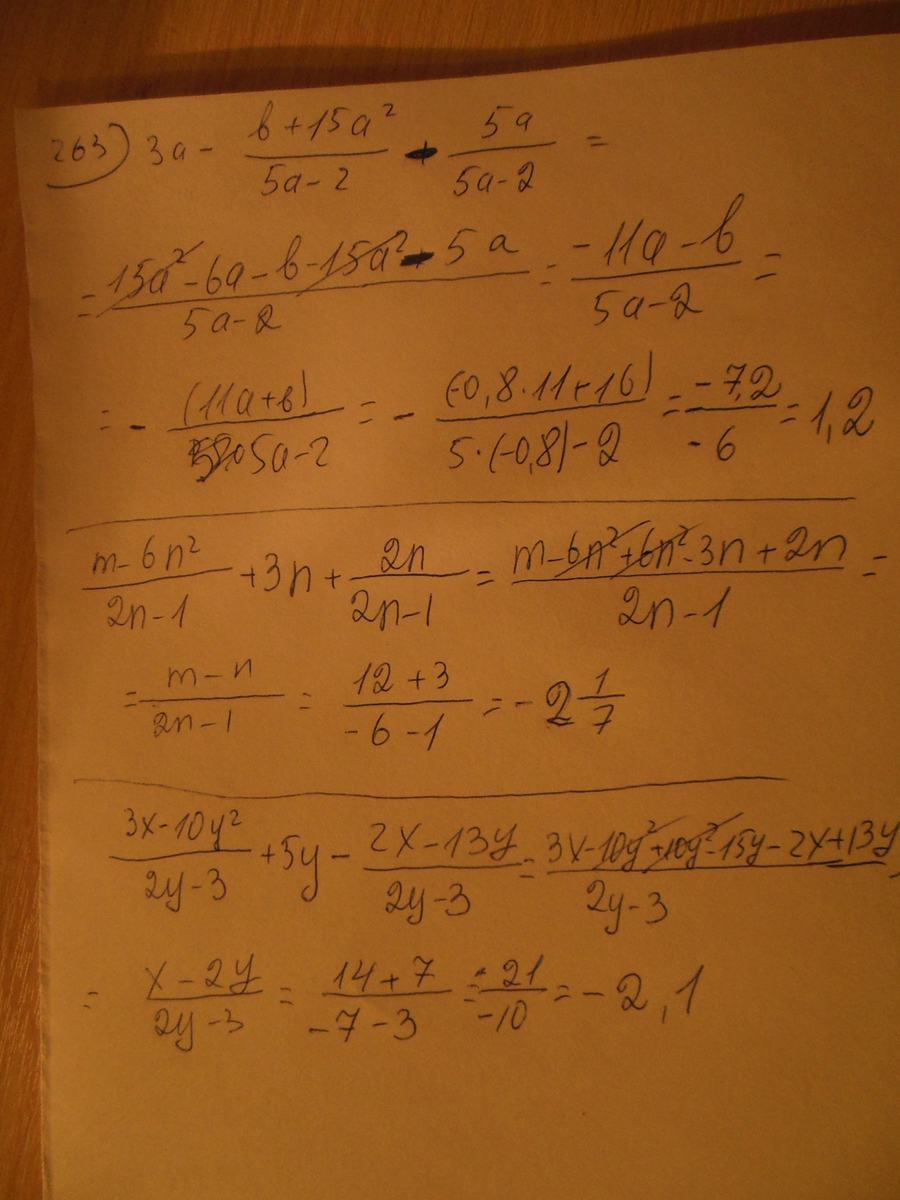 263) 3a - (b+15a²)/(5a-2) - 5a/(5a-2) =
= (15a²-6a-b-15a²-5a)/(5a-2) = (-11a-b)/(5a-2) =
= - (11a+b)/(5a-2) = - (-0,8·11+16)/(5·(-0,8)-2) = -7,2/-6 = 1,2
(m-6n²)/(2n-1) +3n+ 2n/(2n-1) = (m-6n²+6n²-3n+2n)/(2n-1) =
= (m-n)/(2n-1) = (12+3)/(-6-1) = -2 1/7
(3x-10y²)/(2y-3) +5y- (2x-13y)/(2y-3) = (3x-10y²+10y²-15y-2x+13y)/(2y-3)
= (x-2y)/(2y-3) = (14+7)/(-7-3) = 21/-10 = -2,1